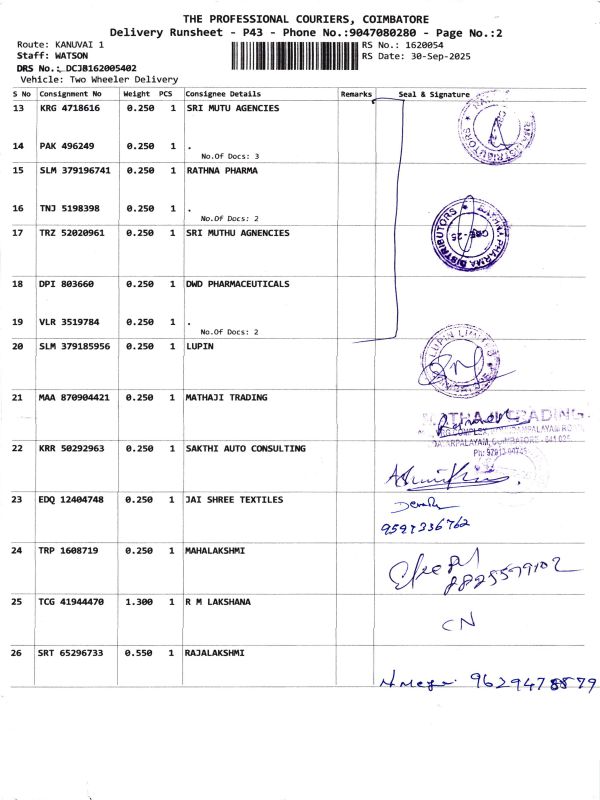 THE PROFESSIONAL COURIERS, COIMBATORE
Delivery Runsheet - P43 - Phone No.:9047080280 - Page No.:2
Route: KANUVAI 1 RS No.: 1620054
Staff: WATSON RS Date: 30-Sep-2025
DRS No.: DCJB162005402
Vehicle: Two Wheeler Delivery
S No Consignment No Weight PCS Consignee Details Remarks Seal & Signature
13 KRG 4718616 0.250 1 SRI MUTU AGENCIES
14 PAK 496249 0.250 1 .
No.Of Docs: 3
15 SLM 379196741 0.250 1 RATHNA PHARMA
16 TNJ 5198398 0.250 1 .
No.Of Docs: 2
17 TRZ 52020961 0.250 1 SRI MUTHU AGNENCIES
RATHNA PHARMA DISTRIBUTORS
18 DPI 803660 0.250 1 DWD PHARMACEUTICALS
19 VLR 3519784 0.250 1 .
No.Of Docs: 2
20 SLM 379185956 0.250 1 LUPIN
LUPIN LIMITED
21 MAA 870904421 0.250 1 MATHAJI TRADING
TRADING
COIMBATORE - 641 025
22 KRR 50292963 0.250 1 SAKTHI AUTO CONSULTING
23 EDQ 12404748 0.250 1 JAI SHREE TEXTILES
9597336762
24 TRP 1608719 0.250 1 MAHALAKSHMI
8825579102
25 TCG 41944470 1.300 1 R M LAKSHANA
CN
26 SRT 65296733 0.550 1 RAJALAKSHMI